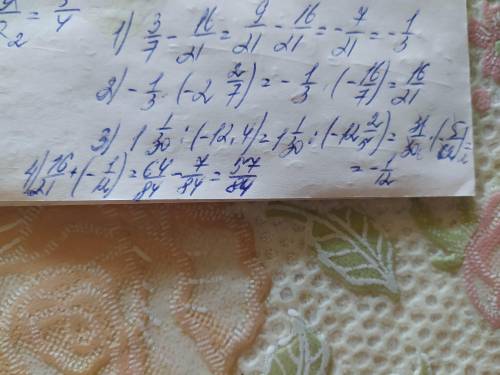 2 = 3/4
1) 3/7 - 16/21 = 9/21 - 16/21 = -7/21 = -1/3
2) -1/3 · (-2 2/7) = -1/3 · (-16/7) = 16/21
3) 1 1/30 : (-12,4) = 1 1/30 : (-12 2/5) = 31/30 ·
= -1/12
4) 16/21 + (-1/12) = 64/84 - 7/84 = 57/84